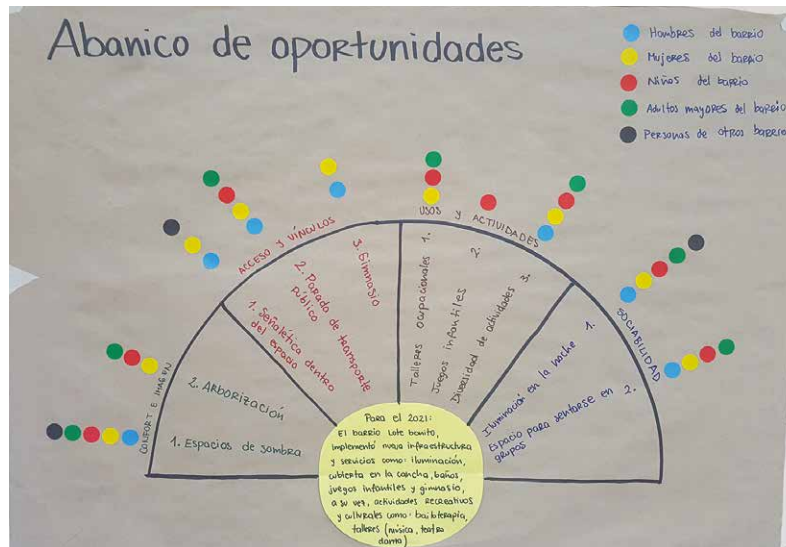 Abanico de oportunidades
Hombres del barrio
Mujeres del barrio
Niños del barrio
Adultos mayores del barrio
Personas de otros barrios
CONFORT E IMAGEN
2. Arborización
1. Espacios de sombra
ACCESO Y VÍNCULOS
1. Señalética dentro
del espacio
2. Parada de transporte
público
3. Gimnasio
USOS y ACTIVIDADES
Talleres ocupacionales 1.
Juegos infantiles 2.
Diversidad de actividades 3.
SOCIABILIDAD
Iluminación en la noche 1.
Espacio para sentarse en 2.
grupos
Para el 2021:
El barrio Lote bonito,
implementó nueva infraestructura
y servicios como: iluminación,
cubierta en la cancha, baños,
juegos infantiles y gimnasio,
a su vez, actividades recreativos
y culturales como: bailoterapia,
talleres (música, teatro
danza)